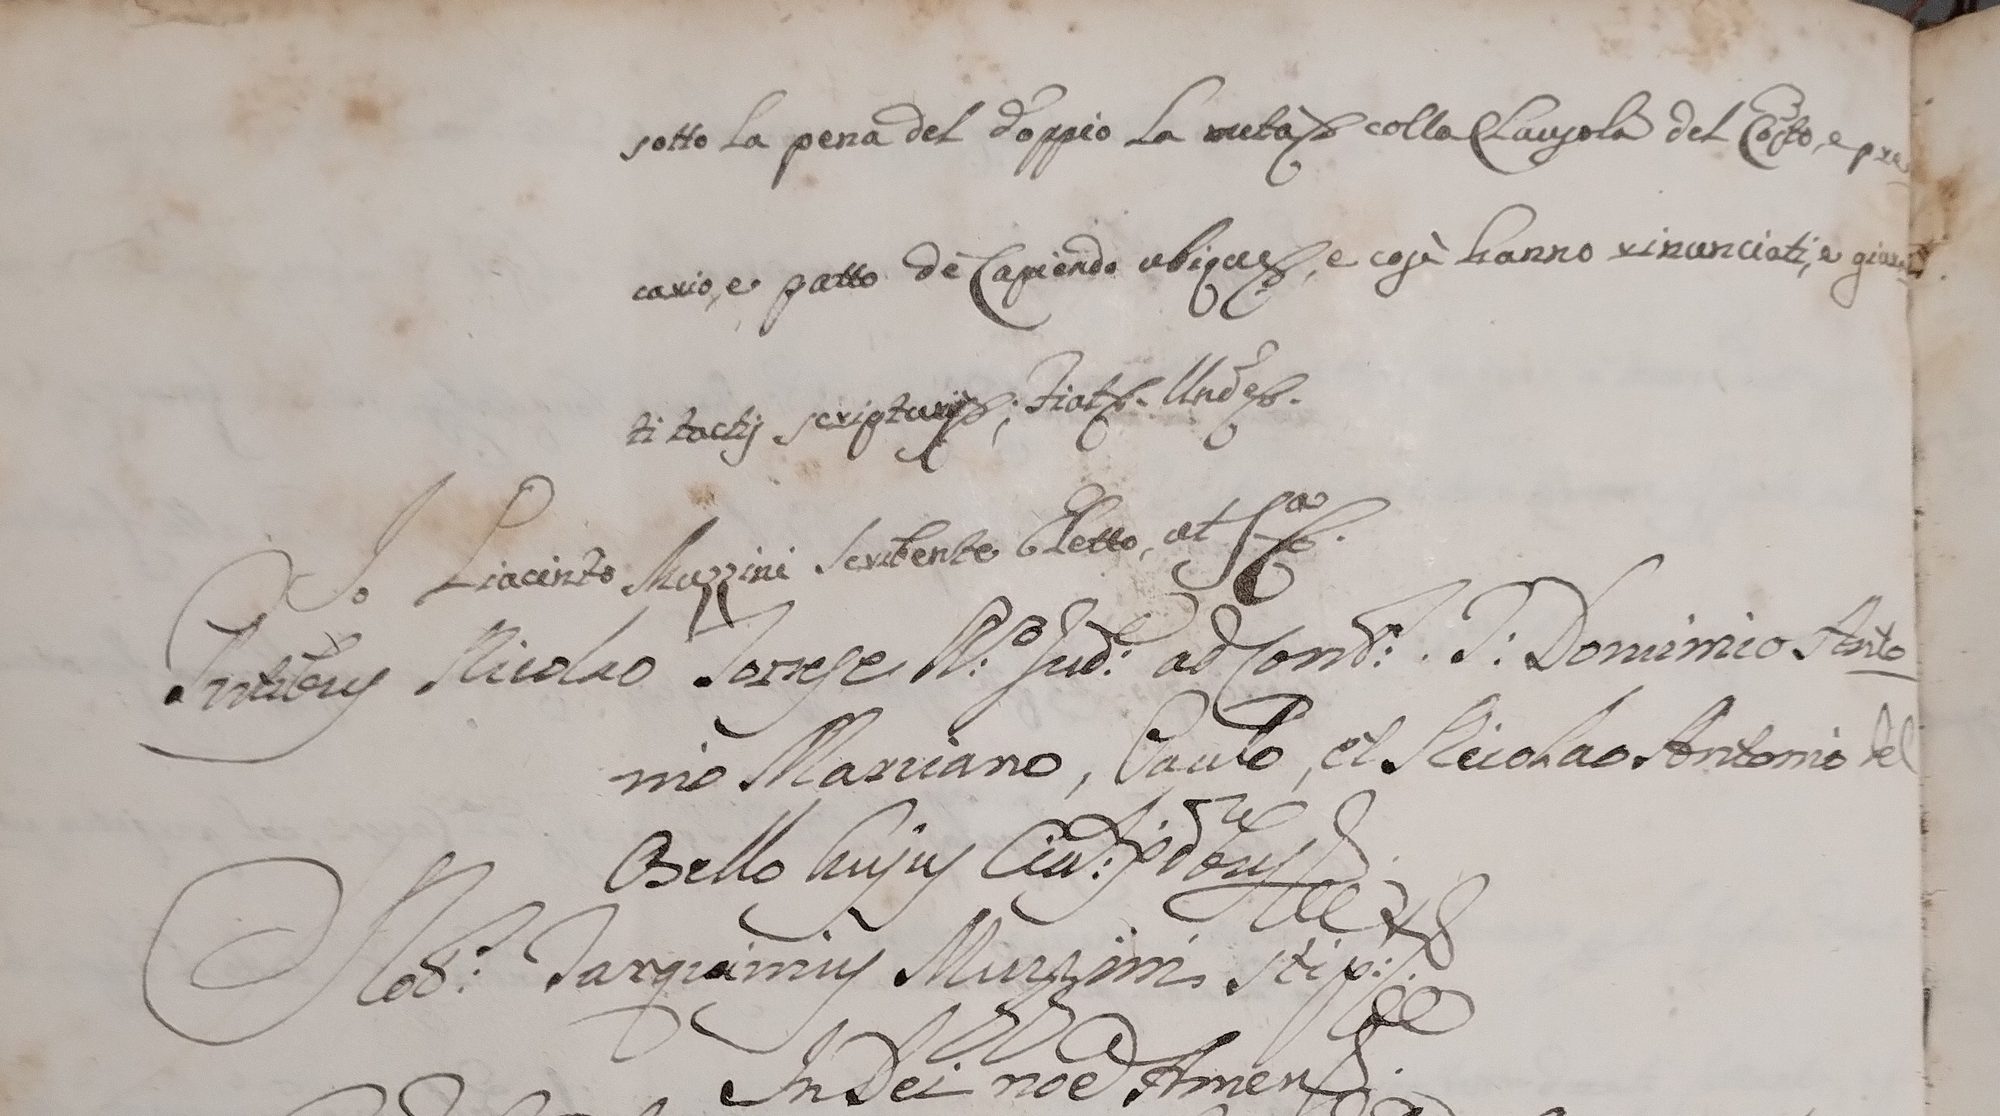 sotto la pena del doppio la metà colla Clausola del Cos.to, e pre
cario, e patto de Capiendo ubique, e così hanno rinunciati, e giura
ti tactis scripturis; Fiat. Unde.
Io Giacinto Muzzini Scribente Eletto, ut S.a
Intibus Nicolao Torrese R.o Jud.e ad Cont.s. T: Dominico Anto
nio Marciano, Paulo, et Nicolao Antonio del
Osello hujus Civ.s
Not.s Tarquinius Muzzini stip.s
In Dei noe Amen